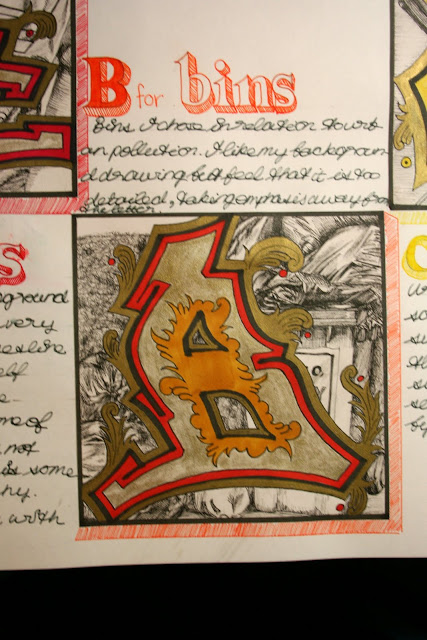 B for bins
Bins I chose In relation to urb
an pollution. I like my backgroun
d drawing but feel that it is too
detailed, taking emphasis away from
the letter.
s
ground
very
elf
of
not
is some
hy.
with